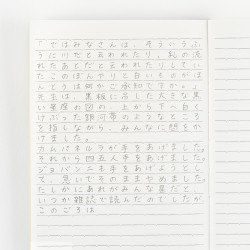 「ではみなさんは、そういうふ
うに川だと云われたり、乳の流
れたあとだと云われたりしてい
たこのぼんやりと白いものがほ
んとうは何かご承知ですか。」
先生は、黒板に吊した大きな黒
い星座の図の、上から下へ白く
けぶった銀河帯のようなところ
を指しながら、みんなに問をか
けました。
カムパネルラが手をあげました。
それから四五人手をあげました。
ジョバンニも手をあげようとし
て、急いでそのままやめました。
たしかにあれがみんな星だと、
いつか雑誌で読んだのでしたが
このごろは